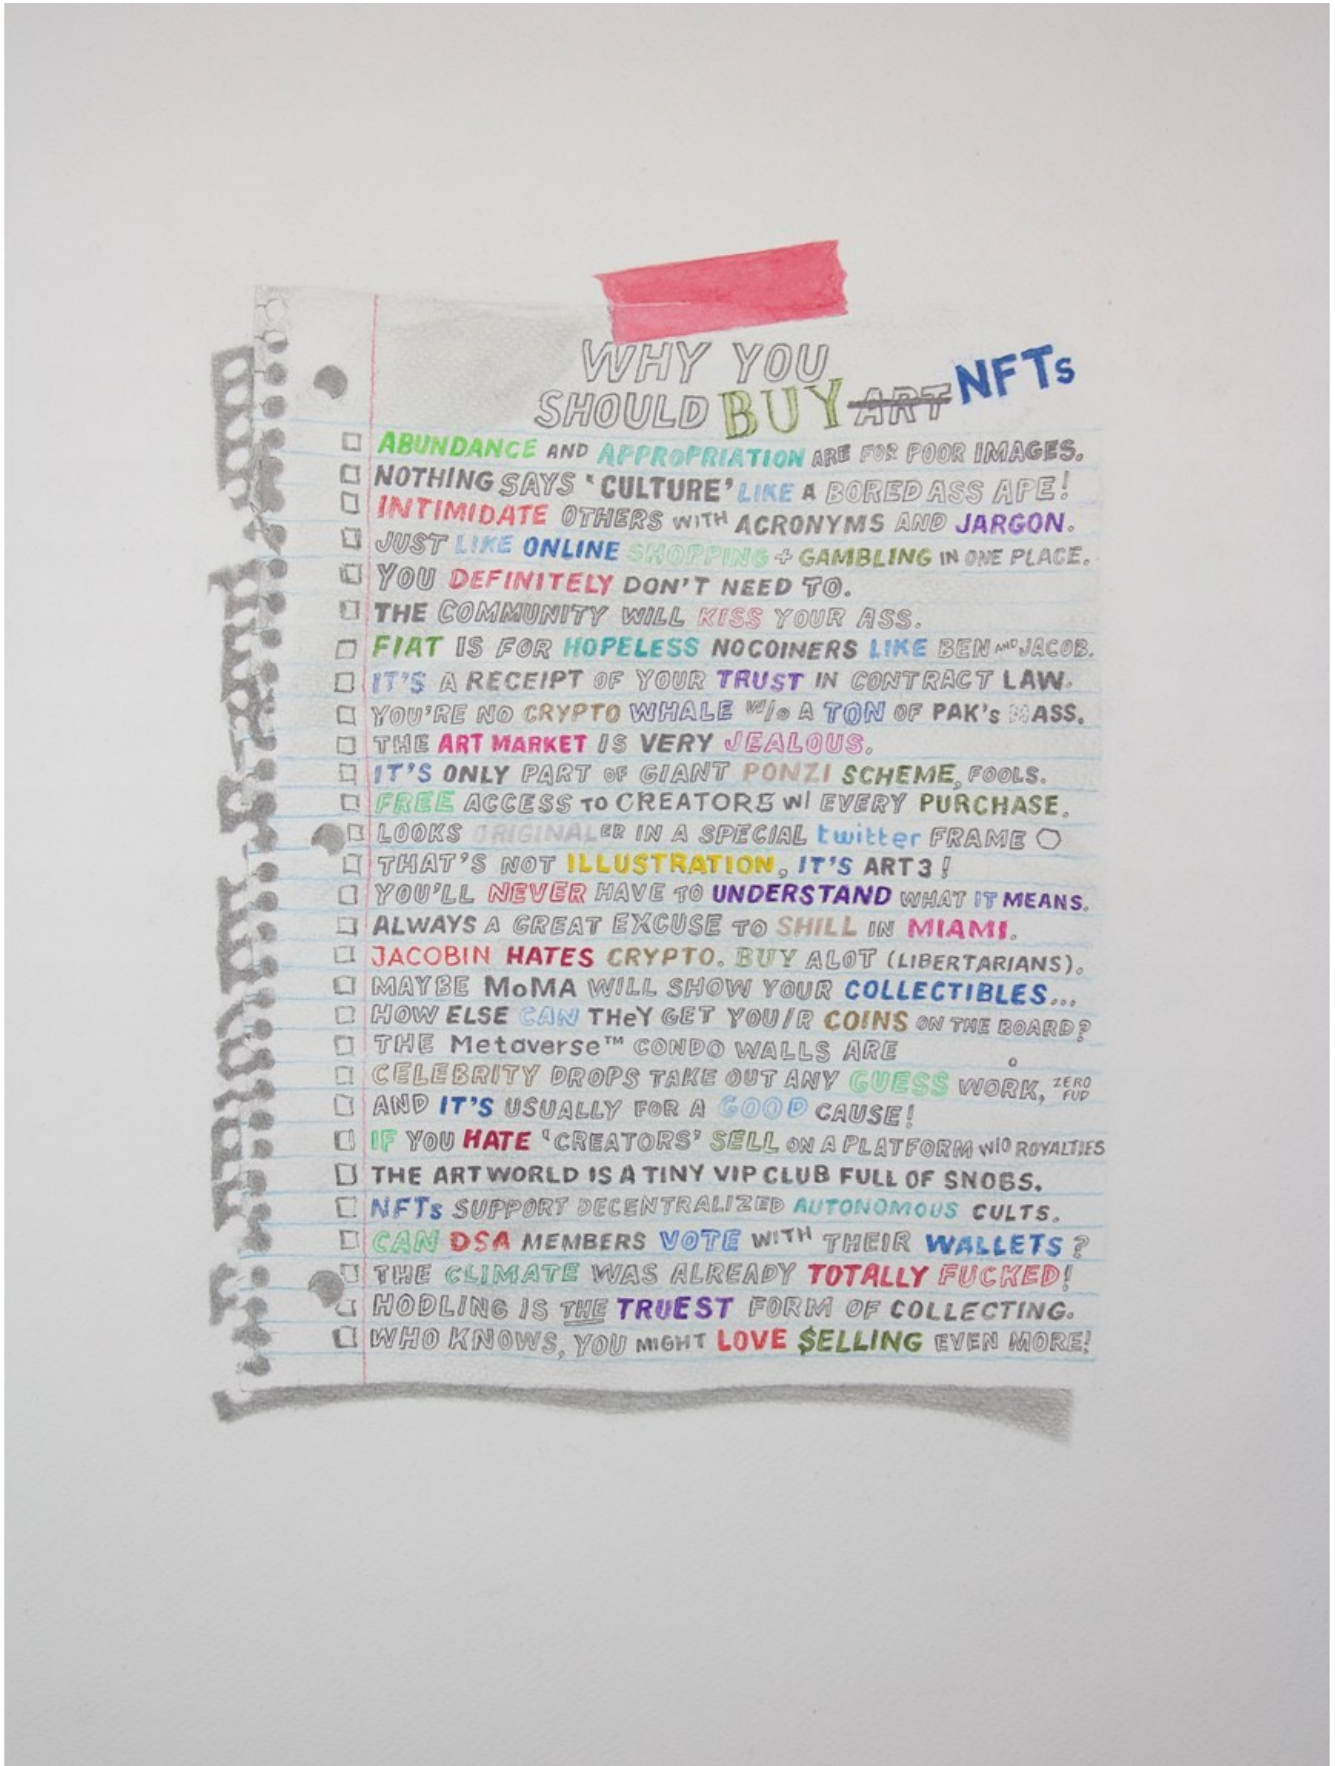 WHY YOU
SHOULD BUY ART NFTs
ABUNDANCE AND APPROPRIATION ARE FOR POOR IMAGES.
NOTHING SAYS 'CULTURE' LIKE A BORED ASS APE!
INTIMIDATE OTHERS WITH ACRONYMS AND JARGON.
JUST LIKE ONLINE SHOPPING + GAMBLING IN ONE PLACE.
YOU DEFINITELY DON'T NEED TO.
THE COMMUNITY WILL KISS YOUR ASS.
FIAT IS FOR HOPELESS NOCOINERS LIKE BEN AND JACOB.
IT'S A RECEIPT OF YOUR TRUST IN CONTRACT LAW.
YOU'RE NO CRYPTO WHALE W/o A TON OF PAK's MASS.
THE ART MARKET IS VERY JEALOUS.
IT'S ONLY PART OF GIANT PONZI SCHEME, FOOLS.
FREE ACCESS TO CREATORS W/ EVERY PURCHASE.
LOOKS ORIGINALER IN A SPECIAL twitter FRAME
THAT'S NOT ILLUSTRATION, IT'S ART3!
YOU'LL NEVER HAVE TO UNDERSTAND WHAT IT MEANS.
ALWAYS A GREAT EXCUSE TO SHILL IN MIAMI.
JACOBIN HATES CRYPTO. BUY ALOT (LIBERTARIANS).
MAYBE MoMA WILL SHOW YOUR COLLECTIBLES...
HOW ELSE CAN THeY GET YOU/R COINS ON THE BOARD?
THE Metaverse™ CONDO WALLS ARE
CELEBRITY DROPS TAKE OUT ANY GUESS WORK, ZERO FUD
AND IT'S USUALLY FOR A GOOD CAUSE!
IF YOU HATE 'CREATORS' SELL ON A PLATFORM W/O ROYALTIES
THE ART WORLD IS A TINY VIP CLUB FULL OF SNOBS.
NFTs SUPPORT DECENTRALIZED AUTONOMOUS CULTS.
CAN DSA MEMBERS VOTE WITH THEIR WALLETS?
THE CLIMATE WAS ALREADY TOTALLY FUCKED!
HODLING IS THE TRUEST FORM OF COLLECTING.
WHO KNOWS, YOU MIGHT LOVE $ELLING EVEN MORE!